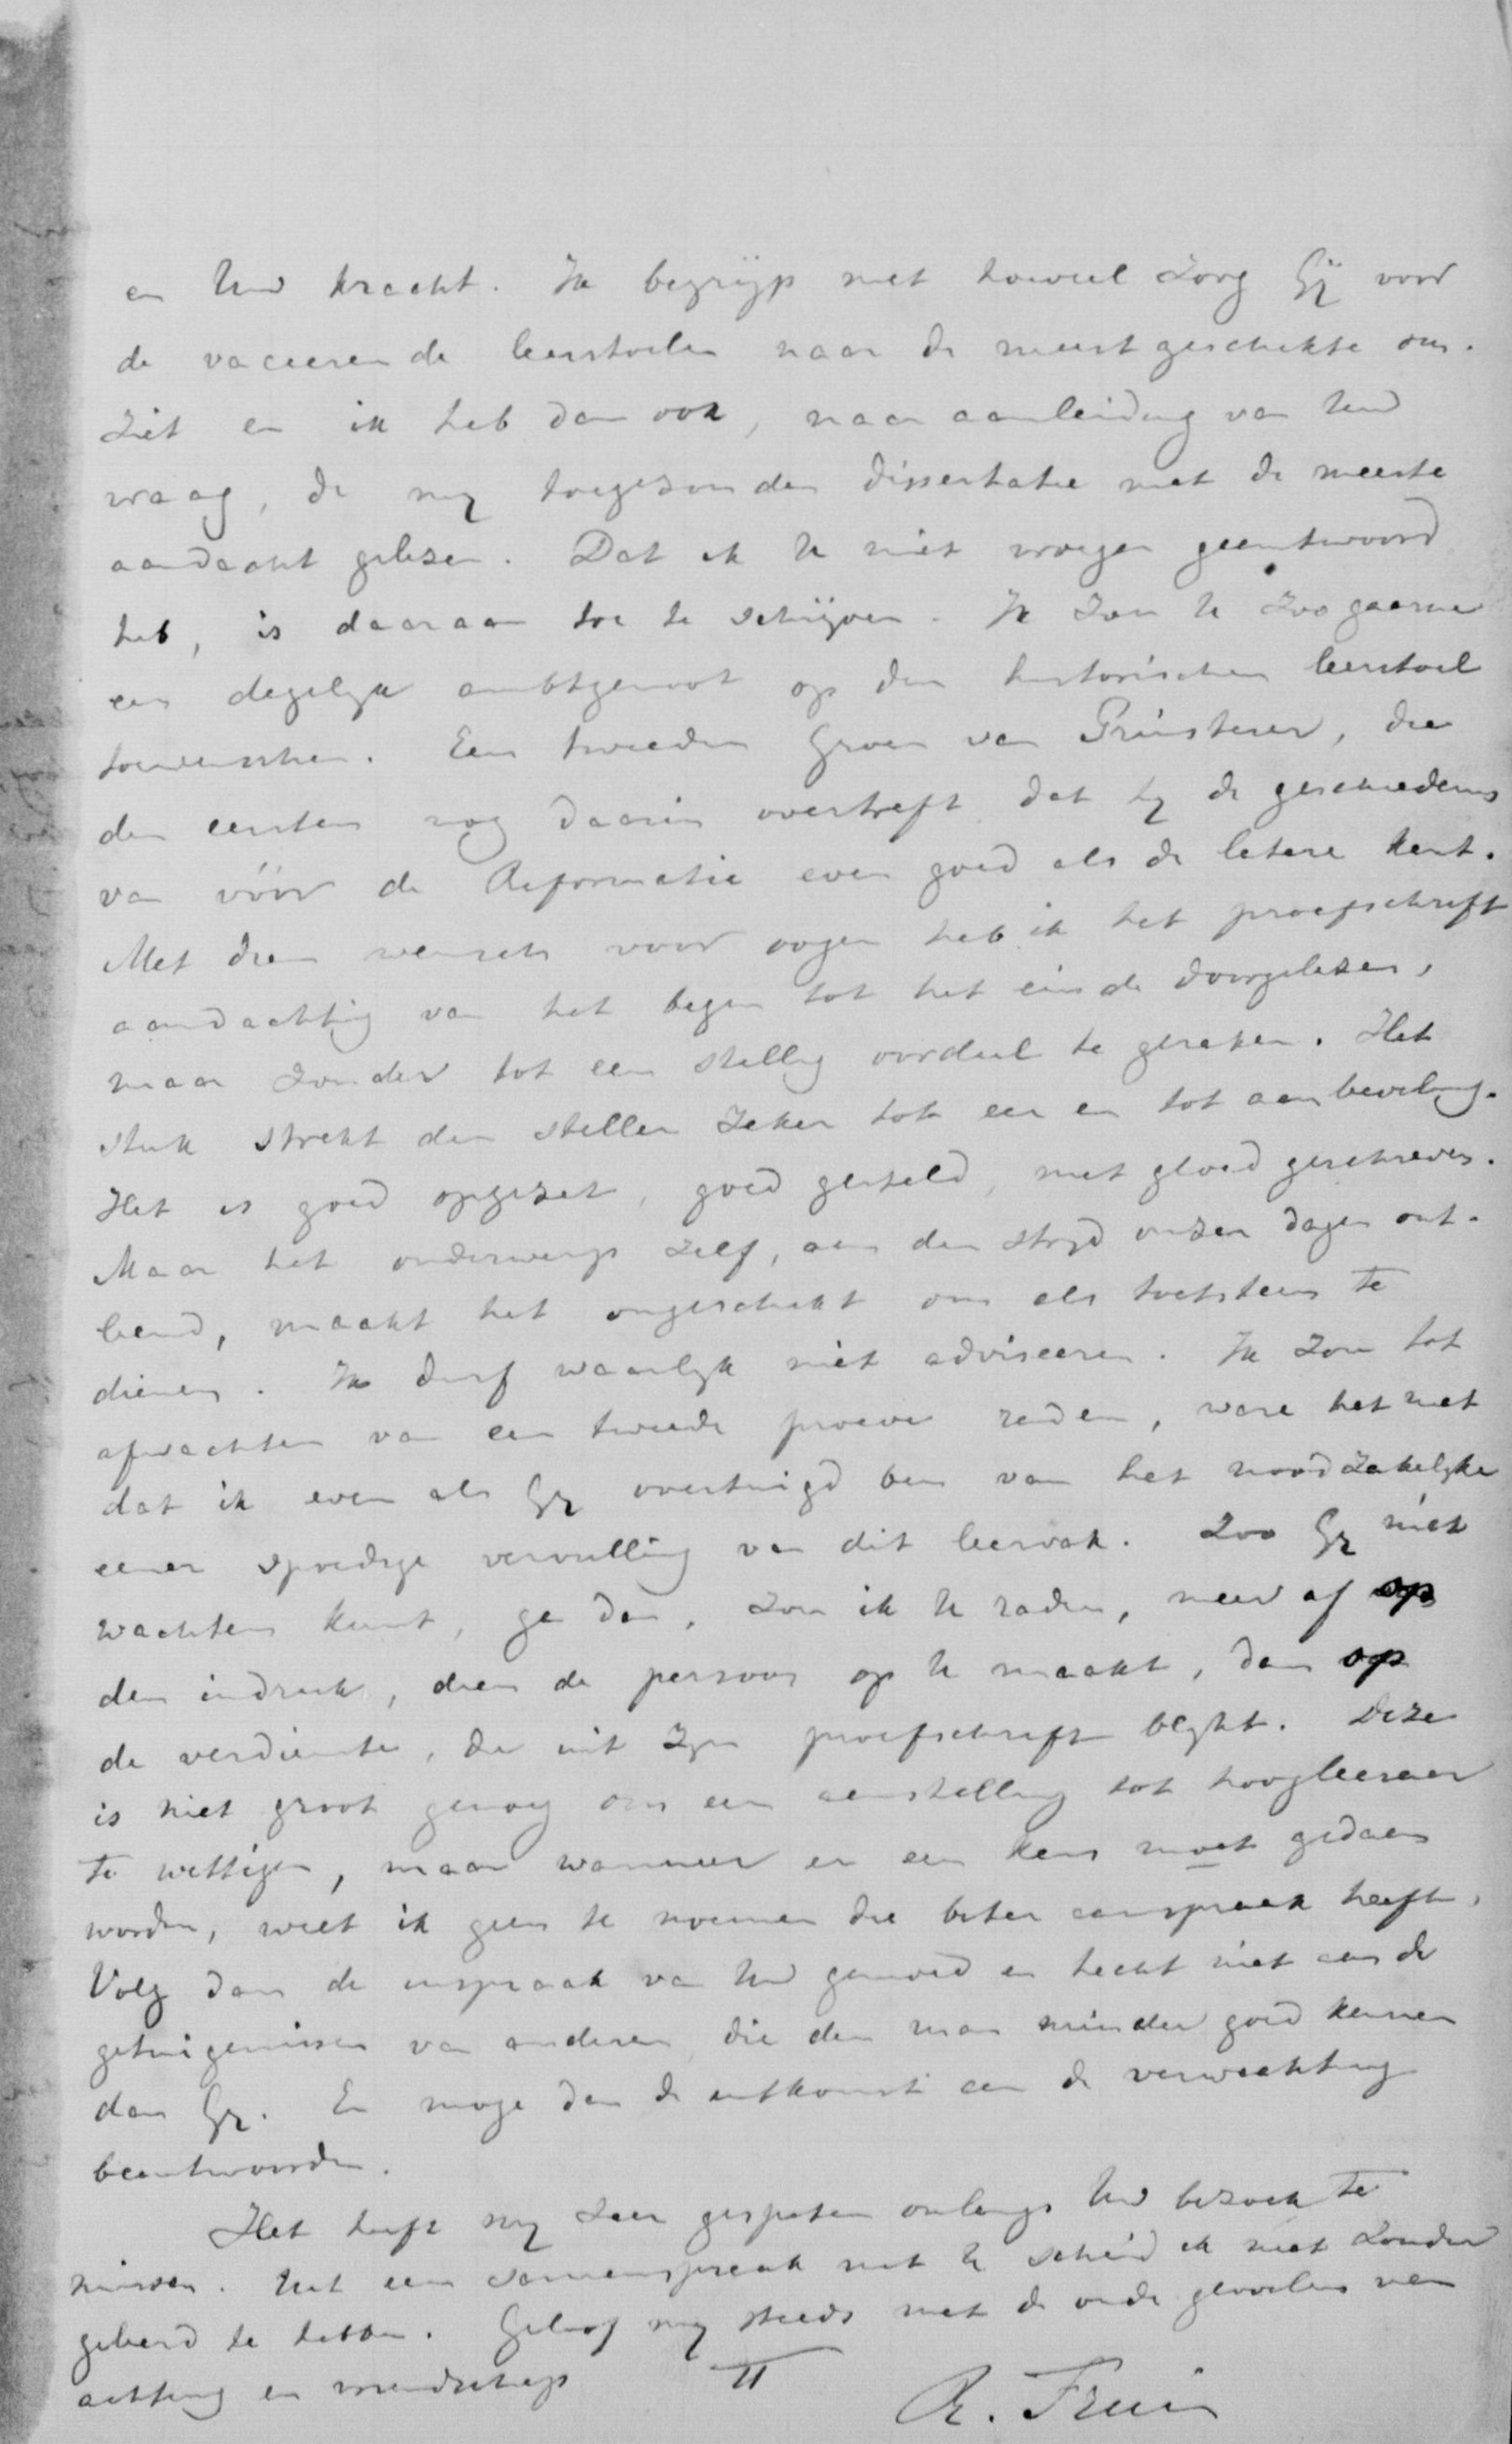 en Uw kracht. Ik begrijp met hoeveel zorg Gij voor
de vaceerende leerstoelen naar de meest geschikte om-
ziet en ik heb dan ook, naar aanleiding van Uw
vraag, de mij toegezonden dissertatie met de meeste
aandacht gelezen. Dat ik U niet vroeger geantwoord
heb, is daaraan toe te schrijven. Ik zou U zoo gaarne
een degelijk ambtgenoot op den historischen leerstoel
toewenschen. Een tweeden Groen van Prinsterer, die
den eersten nog daarin overtreft dat hij de geschiedenis
van vóór de Reformatie even goed als de latere kent.
Met dien wensch voor oogen heb ik het proefschrift
aandachtig van het begin tot het einde doorgelezen,
maar zonder tot een stellig oordeel te geraken. Het
stuk strekt den steller zeker tot eer en tot aanbeveling.
Het is goed opgezet, goed gesteld, met gloed geschreven.
Maar het onderwerp zelf, aan den strijd onzer dagen ont-
leend, maakt het ongeschikt om als toetssteen te
dienen. Ik durf waarlijk niet adviseeren. Ik zou tot
afwachten van een tweede proeve raden, ware het niet
dat ik even als Gij overtuigd ben van het noodzakelijke
eener spoedige vervulling van dit leervak. Zoo Gij niet
wachten kunt, ga dan, zou ik U raden, meer af op
den indruk, dien de persoon op U maakt, dan op
de verdienste, die uit zijn proefschrift blijkt. Deze
is niet groot genoeg om een aanstelling tot hoogleeraar
te wettigen, maar wanneer er een keus moet gedaan
worden, weet ik geen te noemen die beter aanspraak heeft.
Volg dan de inspraak van Uw gemoed en hecht niet aan de
getuigenissen van anderen die den man minder goed kennen
dan Gij. En moge dan de uitkomst aan de verwachting
beantwoorden.
Het heeft mij zeer gespeten onlangs Uw bezoek te
missen. Uit een samenspraak met U scheid ik niet zonder
geleerd te hebben. Geloof mij steeds met de oude gevoelens van
achting en vriendschap TT
R. Fruin